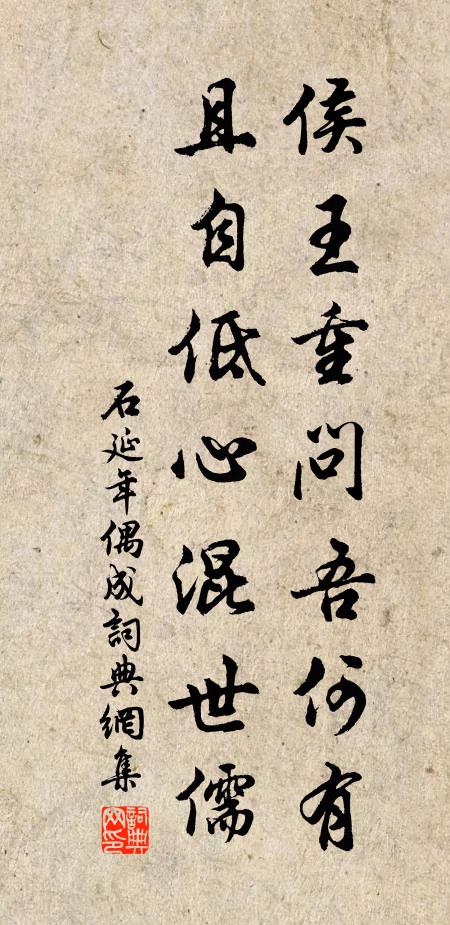 侯王重問吾何有
且自低心混世儒
石延年偶成詞典網集
詞典網印